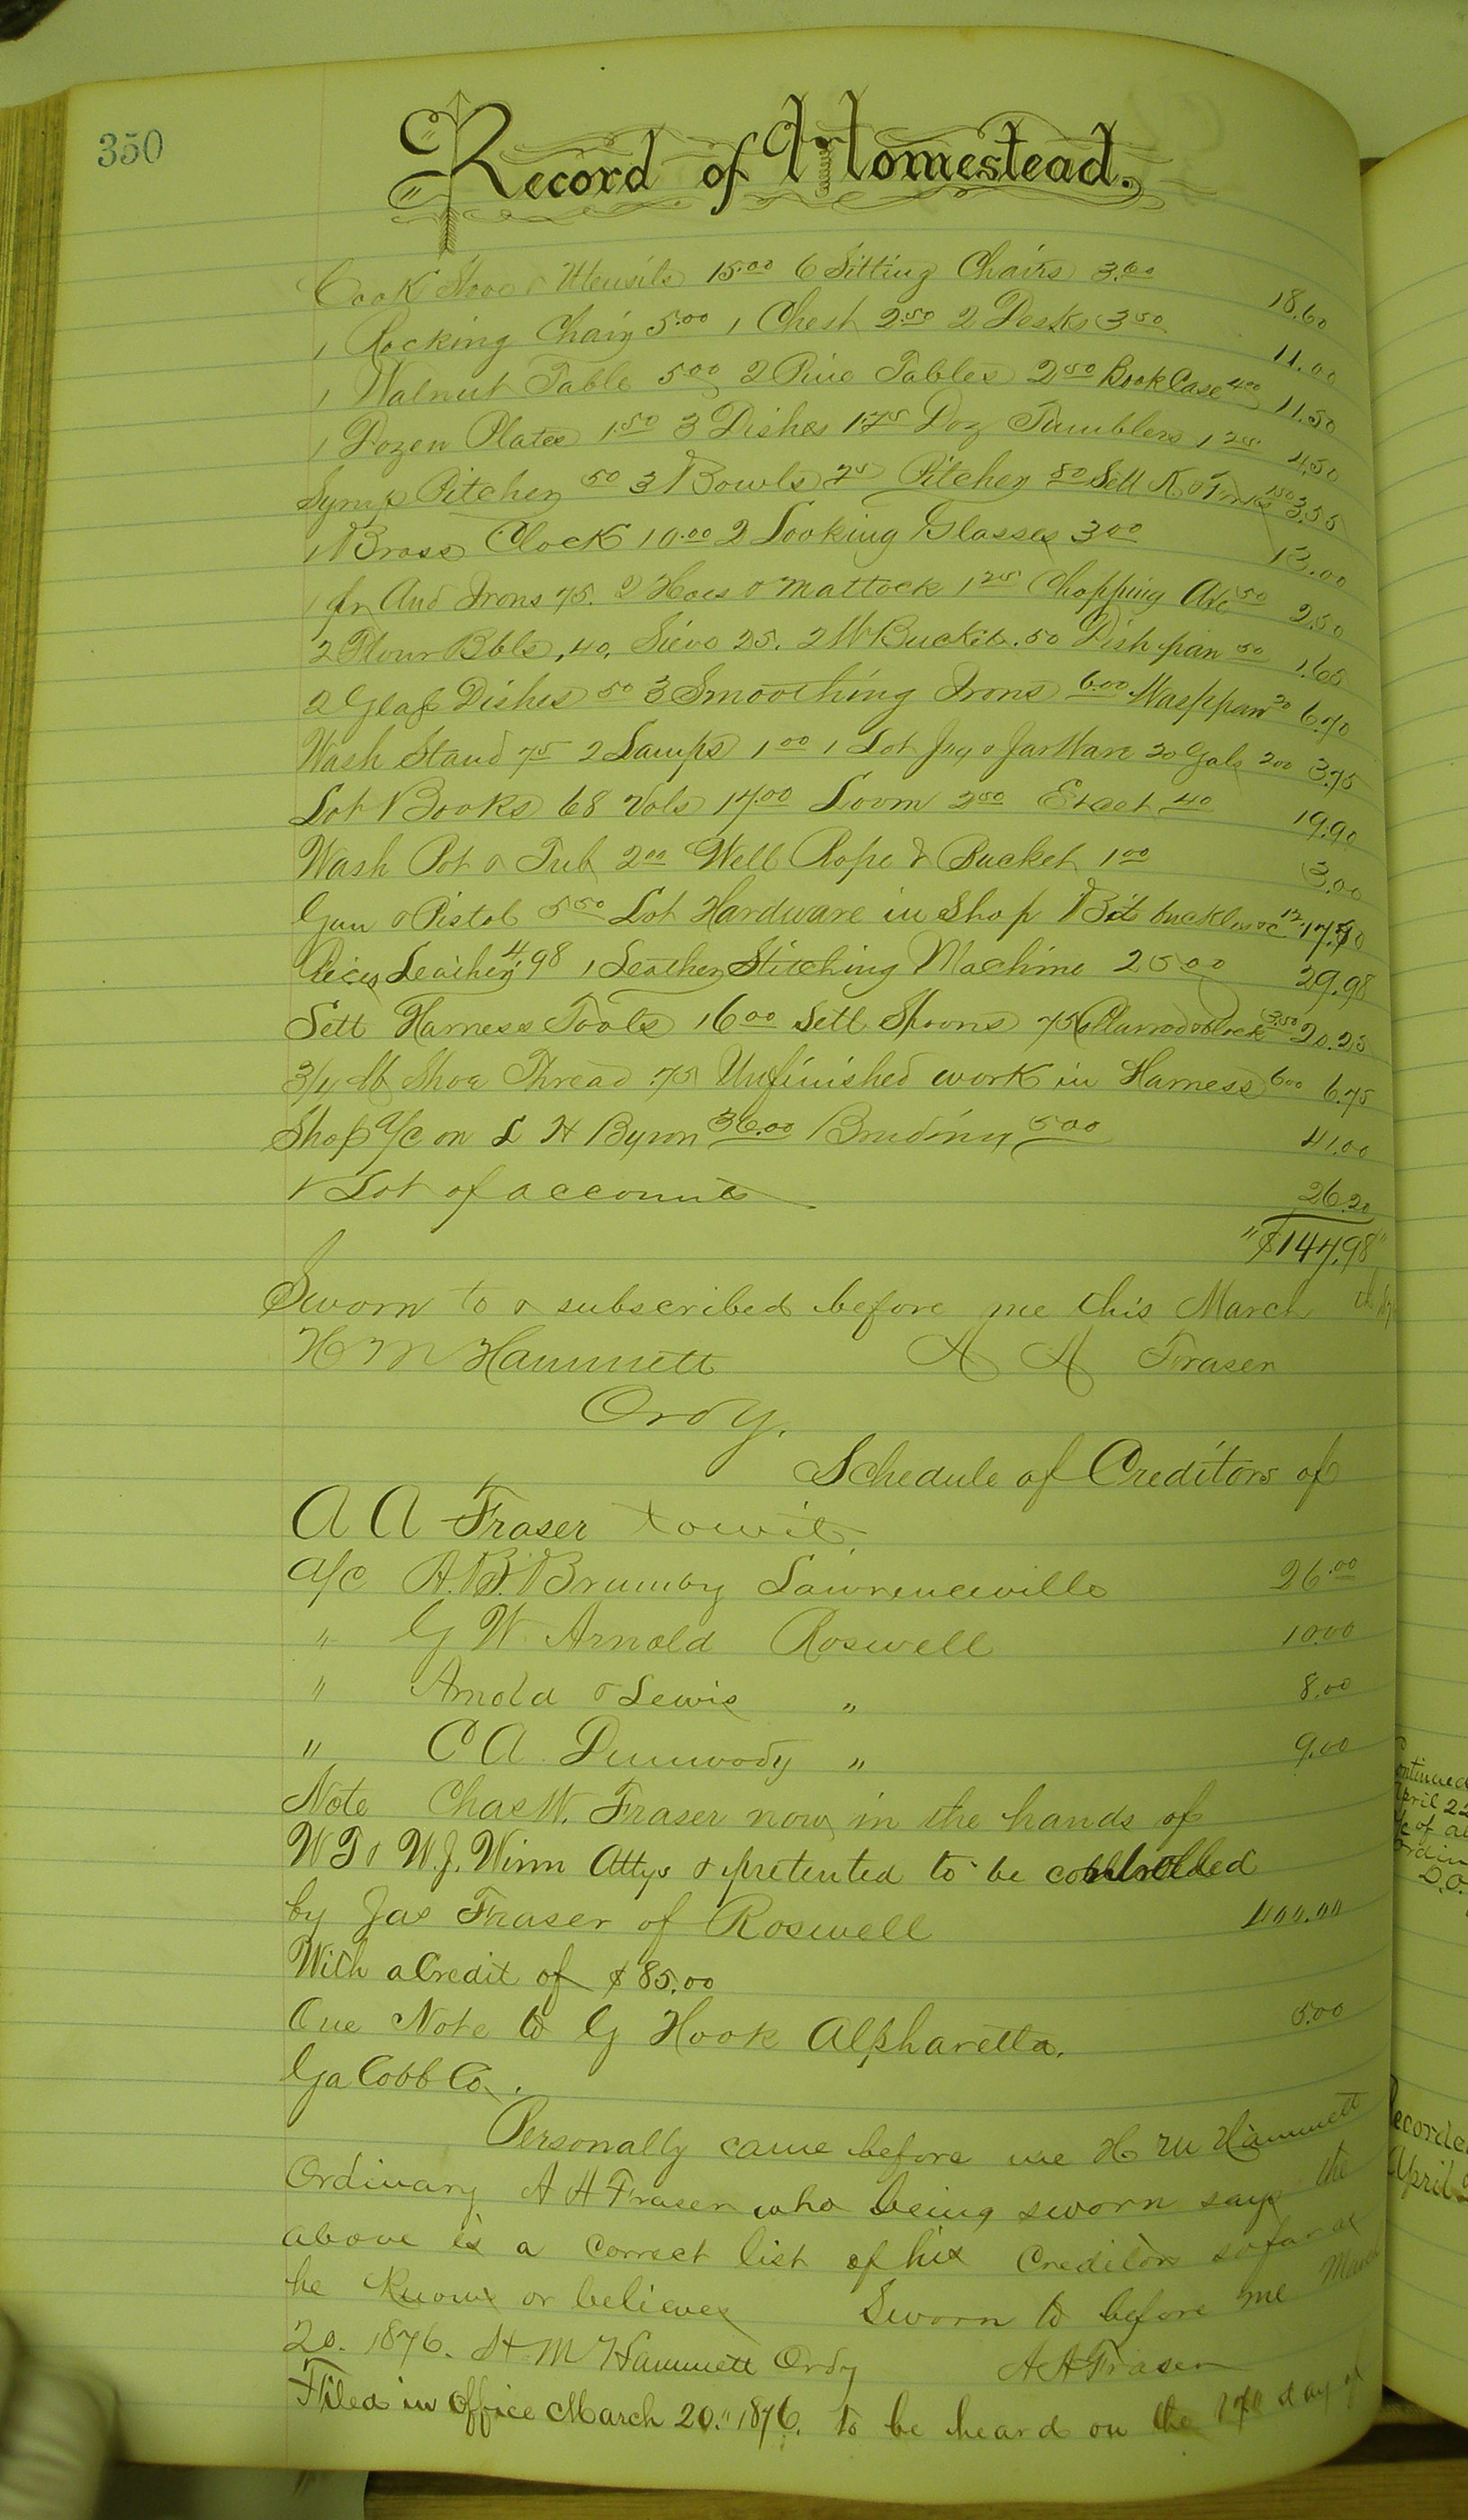 350
Record of Homestead.
Cook Stove & Utensils 15.00 6 Sitting Chairs 3.60 18.60
1 Rocking Chair 5.00 1 Chest 2.50 2 Desks 3.50 11.00
1 Walnut Table 5.00 2 Pine Tables 2.50 Book Case 4.00 11.50
1 Dozen Plates 1.50 3 Dishes 1.75 Doz Tumblers 1.25 4.50
Syrup Pitcher 50 3 Bowls 75 Pitcher 80 Sett K & Forks 1.50 3.55
1 Brass Clock 10.00 2 Looking Glasses 3.00 13.00
1 pr And Irons 75. 2 Hoes & Mattock 1.25 Chopping Axe 50 2.50
2 Flour Bbls, 40, Sieve 25. 2 W Buckets .50 Dish pan 50 1.65
2 Glass Dishes 50 3 Smoothing Irons 6.00 Wash pan 20 6.70
Wash Stand 75 2 Lamps 1.00 1 Lot Jug & Jar Ware 20 Gals 2.00 3.75
Lot Books 68 Vols 17.00 Loom 2.50 40 19.90
Wash Pot & Tub 2.00 Well Rope & Bucket 1.00 3.00
Gun & Pistol 5.50 Lot Hardware in Shop Bits buckles &c 12
Pieces Leather 4.98 1 Leather Stitching Machine 25.00 29.98
Sett Harness Tools 16.00 Sett Spoons 75 3.50 20.25
3/4 lb Shoe Thread .75 Unfinished work in Harness 6.00 6.75
Shop a/c on L H Byron 36.00 5.00 41.00
1 Lot of accounts 26.20
"$147.98"
Sworn to & subscribed before me this March
H M Hammett A A Fraser
Ordy.
Schedule of Creditors of
A A Fraser towit.
a/c A. B. Brumby Lawrenceville 26.00
" G W Arnold Roswell 10.00
" Arnold & Lewis " 8.00
" C A Dunwody " 9.00
Note Chas W. Fraser now in the hands of
W T & W. J. Winn Attys & pretented to be controlled
by Jas Fraser of Roswell
With a Credit of $85.00
One Note to G Hook Alpharetta. 5.00
Ga Cobb Co.
Personally came before me H M Hammett
Ordinary A A Fraser who being sworn says the
above is a correct list of his Creditors so far as
he Knows or believes Sworn to before me March
20. 1876. H M Hammett Ordy A A Fraser
Filed in office March 20." 1876. to be heard on the day of